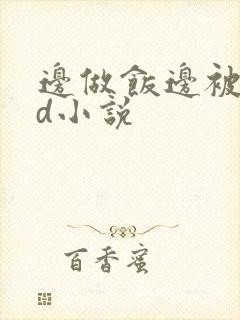 邊做飯邊被
d小説
百香蜜